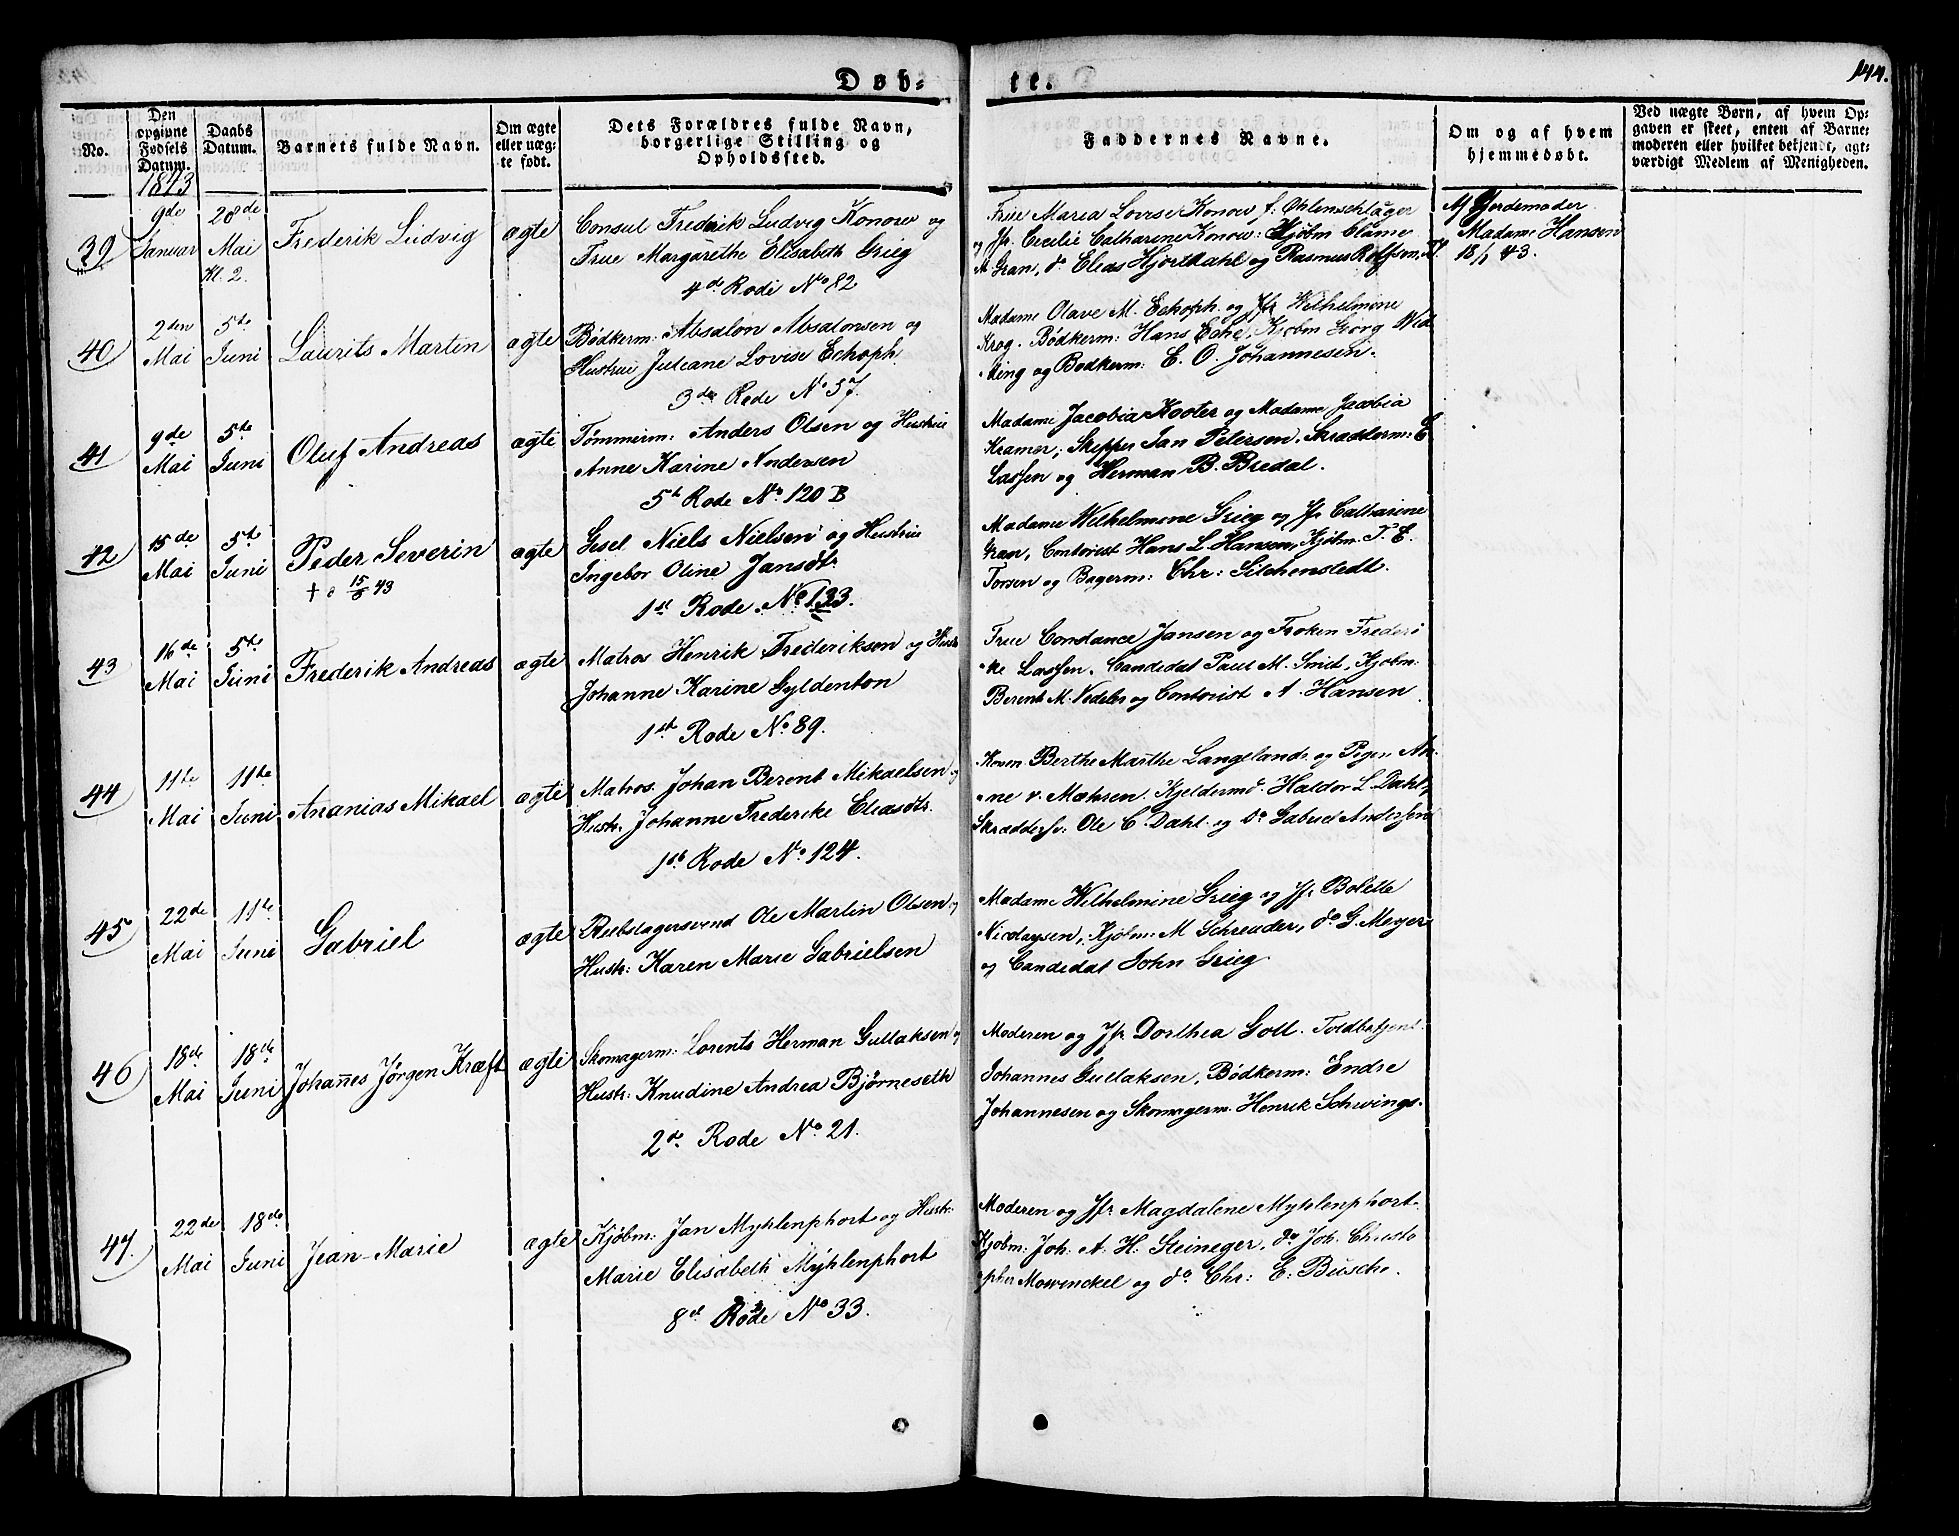 Døb-
te.
144.
No.
Den opgivne Fødsels Datum.
Daabs Datum.
Barnets fulde Navn.
Om ægte eller uæg-te født.
Dets Forældres fulde Navn, borgerlige Stilling og Opholdssted.
Faddernes Navne.
Om og af hvem hjemmedøbt.
Ved uægte Børn, af hvem Op-gaven er skeet, enten af Barne-moderen eller hvilket bekjendt, agt-værdigt Medlem af Menigheden.
1843
39
9de Januar
28de Mai Kl. 2.
Frederik Ludvig
ægte
Consul Fredrik Ludvig Konow og
Frue Margarethe Elisabeth Grieg
4de Rode No 82
Frue Maria Lovise Konow f. Øhlenschläger
og Jfr. Cecilie Catharine Konow: Kjøbm Claime
M Gran, do Elias Hjortdahl og Rasmus Rolfsen,
Af Jordemoder
Madame Hansen
18/1 43.
40
2den Mai
5te Juni
Laurits Martin
ægte
Bødkerm: Absalon Absalonsen og
Hustrue Juliane Lovise Echoph.
3die Rode No 57.
Madame Olave M. Echoph. og Jfr Wilhelmine
Krog. Bødkerm: Hans Eche, Kjøbm Georg Wed
ding og Bødkerm: E. O. Johannesen.
41
9de Mai
5te Juni
Oluf Andreas
ægte
Tømmerm: Anders Olsen og Hustrue
Anne Karine Andersen
5te Rode No. 120 B
Madame Jacobia Kooter og Madame Jacobia
Kramer, Skipper Jan Petersen. Skrædderm: E
Lassen og Herman B. Bredal.
42
15de Mai
5te Juni
Peder Severin
† d 15/6 43
ægte
Gesel Niels Nielsen og Hustrue
Ingebor Oline Jansdtr.
1st Rode. No 133.
Madame Wilhelmine Grieg og Jfr Catharine
Gran, Contorist Hans L. Hansen, Kjøbm. T. E.
Torsen og Bagerm: Chr: Lichenstedt.
43
16de Mai
5te Juni
Frederik Andreas
ægte
Matros Henrik Frederiksen og Hustr
Johanne Karine Gyldenton
1ste Rode No. 89.
Frue Constance Jansen og Frøken Frederi
ke Lassen. Candidat Paul M. Smit, Kjøbm:
Berent M. Vedeler og Contorist A. Hansen.
44
11te Mai
11te Juni
Ananias Mikael
ægte
Matros. Johan Berent Mikaelsen og
Hustr. Johanne Frederikke Eliasdtr.
1ste Rode No. 124.
Konen Berthe Marthe Langeland og Pigen An
ne v. Mæhren. Kjeldermd Haldor L Dahl,
Skræddersv: Ole C. Dahl og do Gabriel Andersen
45
22de Mai
11te Juni
Gabriel
ægte
Rebslagersvend Ole Martin Olsen og
Hustr: Karen Marie Gabrielsen
Madame Wilhelmine Grieg og Jfr. Bolette
Nicolaysen, Kjøbm: M Schreuder, do G. Meyer
og Candidat John Grieg.
46
18de Mai
18de Juni
Johañes Jørgen Kræft
ægte
Skomagerm: Lorents Herman Gullaksen og
Hustr: Knudine Andrea Bjørneseth
2de Rode No. 21.
Moderen og Jfr. Dorthea Goll. Toldbetjent
Johannes Gullaksen, Bødkerm: Endre
Johannesen og Skomagerm. Henrik Schwings.
47.
22de Mai
18de Juni
Jean-Marie
ægte
Kjøbm: Jan Myhlenphort og Hustr:
Marie Elisabeth Myhlenphort
8de Rode No 33.
Moderen og Jfr Magdalene Myhlenphort
Kjøbm: Joh: A. H. Steineger, do Joh. Christo
pher Mowinckel og do Chr: E. Busche.